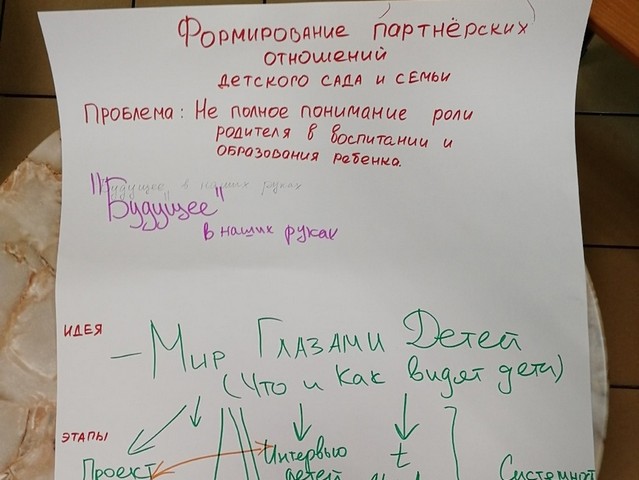 Формирование партнёрских
отношений
детского сада и семьи
Проблема: Не полное понимание роли
родителя в воспитании и
образования ребенка.
Будущее в наших руках
"Будущее"
в наших руках
идея
– Мир Глазами Детей
(что и как видят дети)
этапы
Проект
Интервью
детей
t
Системност